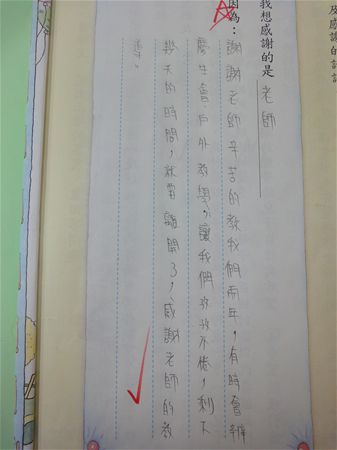 我想感謝的是老師
因為：
謝謝老師辛苦的教我們兩年，有時會辦
慶生會、戶外教學，讓我們孜孜不倦，剩下
幾天的時間，就要離開了，感謝老師的教
導。